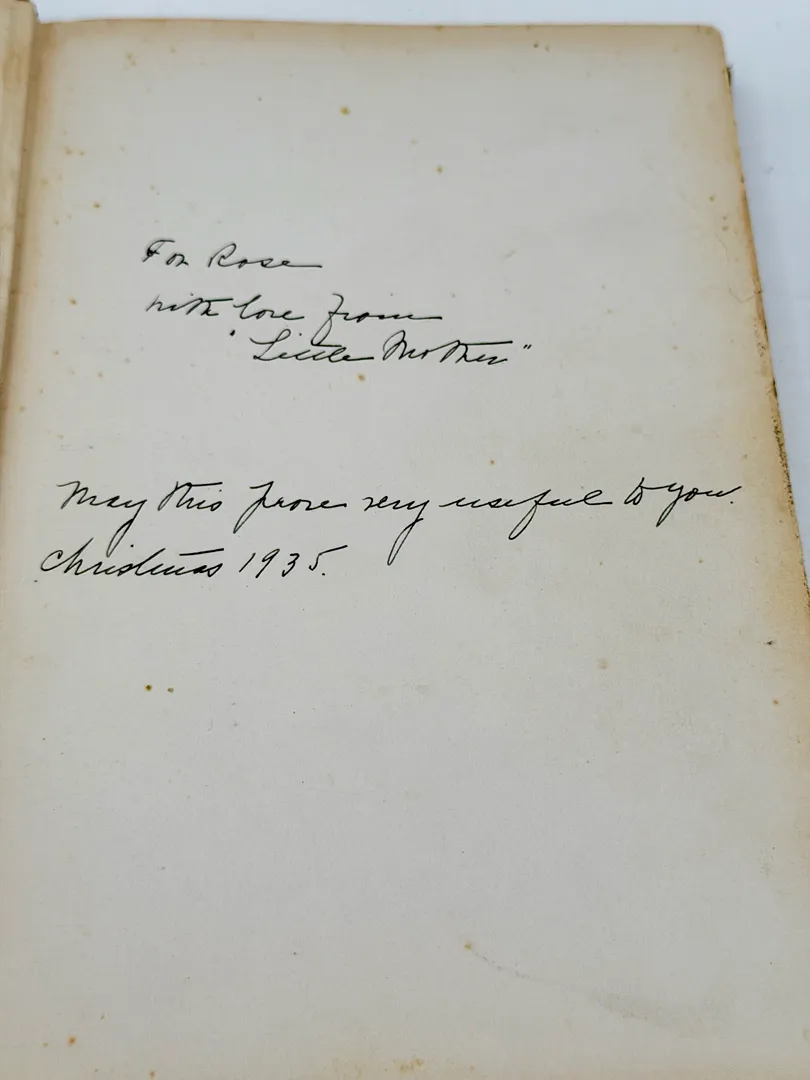 For Rose
with love from
"Little Mother"
May this prove very useful to you.
Christmas 1935.